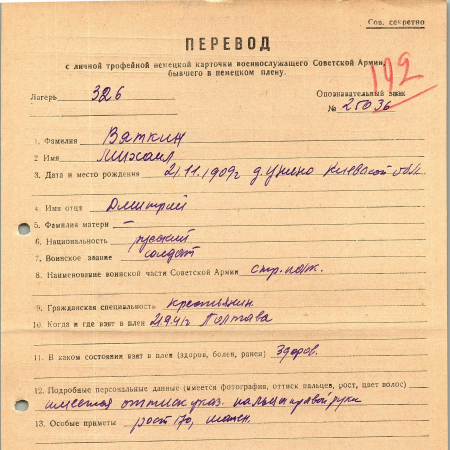 Сов. секретно
ПЕРЕВОД
с личной трофейной немецкой карточки военнослужащего Советской Армии,
бывшего в немецком плену.
192
Лагерь 326
Опознавательный знак
№ 25036
1. Фамилия Вяткин
2 Имя Михаил
3. Дата и место рождения 2/11.1909г д. Киевской обл.
4 Имя отца Дмитрий
5. Фамилия матери —
6. Национальность русский
7. Воинское звание солдат
8. Наименование воинской части Советской Армии стр.
9. Гражданская специальность крестьянин
10. Когда и где взят в плен Полтава
11. В каком состоянии взят в плен (здоров, болен, ранен) здоров.
12. Подробные персональные данные (имеется фотография, оттиск пальцев, рост, цвет волос)
имеется оттиск указ. пальца правой руки
13. Особые приметы рост 170,